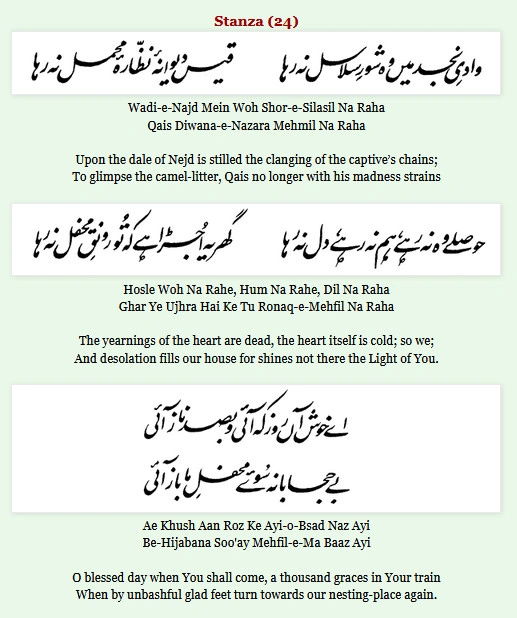 Stanza (24)
وادیِ نجد میں وہ شورِ سلاسل نہ رہا
قیس دیوانۂ نظّارۂ محمل نہ رہا
Wadi-e-Najd Mein Woh Shor-e-Silasil Na Raha
Qais Diwana-e-Nazara Mehmil Na Raha
Upon the dale of Nejd is stilled the clanging of the captive’s chains;
To glimpse the camel-litter, Qais no longer with his madness strains
حوصلے وہ نہ رہے، ہم نہ رہے، دل نہ رہا
گھر یہ اُجڑا ہے کہ تُو رونقِ محفل نہ رہا
Hosle Woh Na Rahe, Hum Na Rahe, Dil Na Raha
Ghar Ye Ujhra Hai Ke Tu Ronaq-e-Mehfil Na Raha
The yearnings of the heart are dead, the heart itself is cold; so we;
And desolation fills our house for shines not there the Light of You.
اے خوش آں روز کہ آئی و بصد ناز آئی
بے حجابانہ سُوئے محفلِ ما باز آئی
Ae Khush Aan Roz Ke Ayi-o-Bsad Naz Ayi
Be-Hijabana Soo'ay Mehfil-e-Ma Baaz Ayi
O blessed day when You shall come, a thousand graces in Your train
When by unbashful glad feet turn towards our nesting-place again.